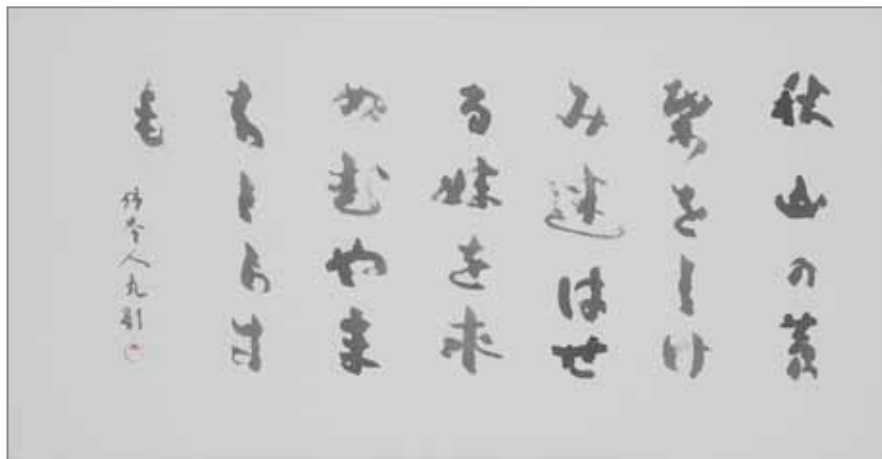 秋山の黄
葉をしけ
み迷はせ
る妹を求
めむやま
ちしらす
も